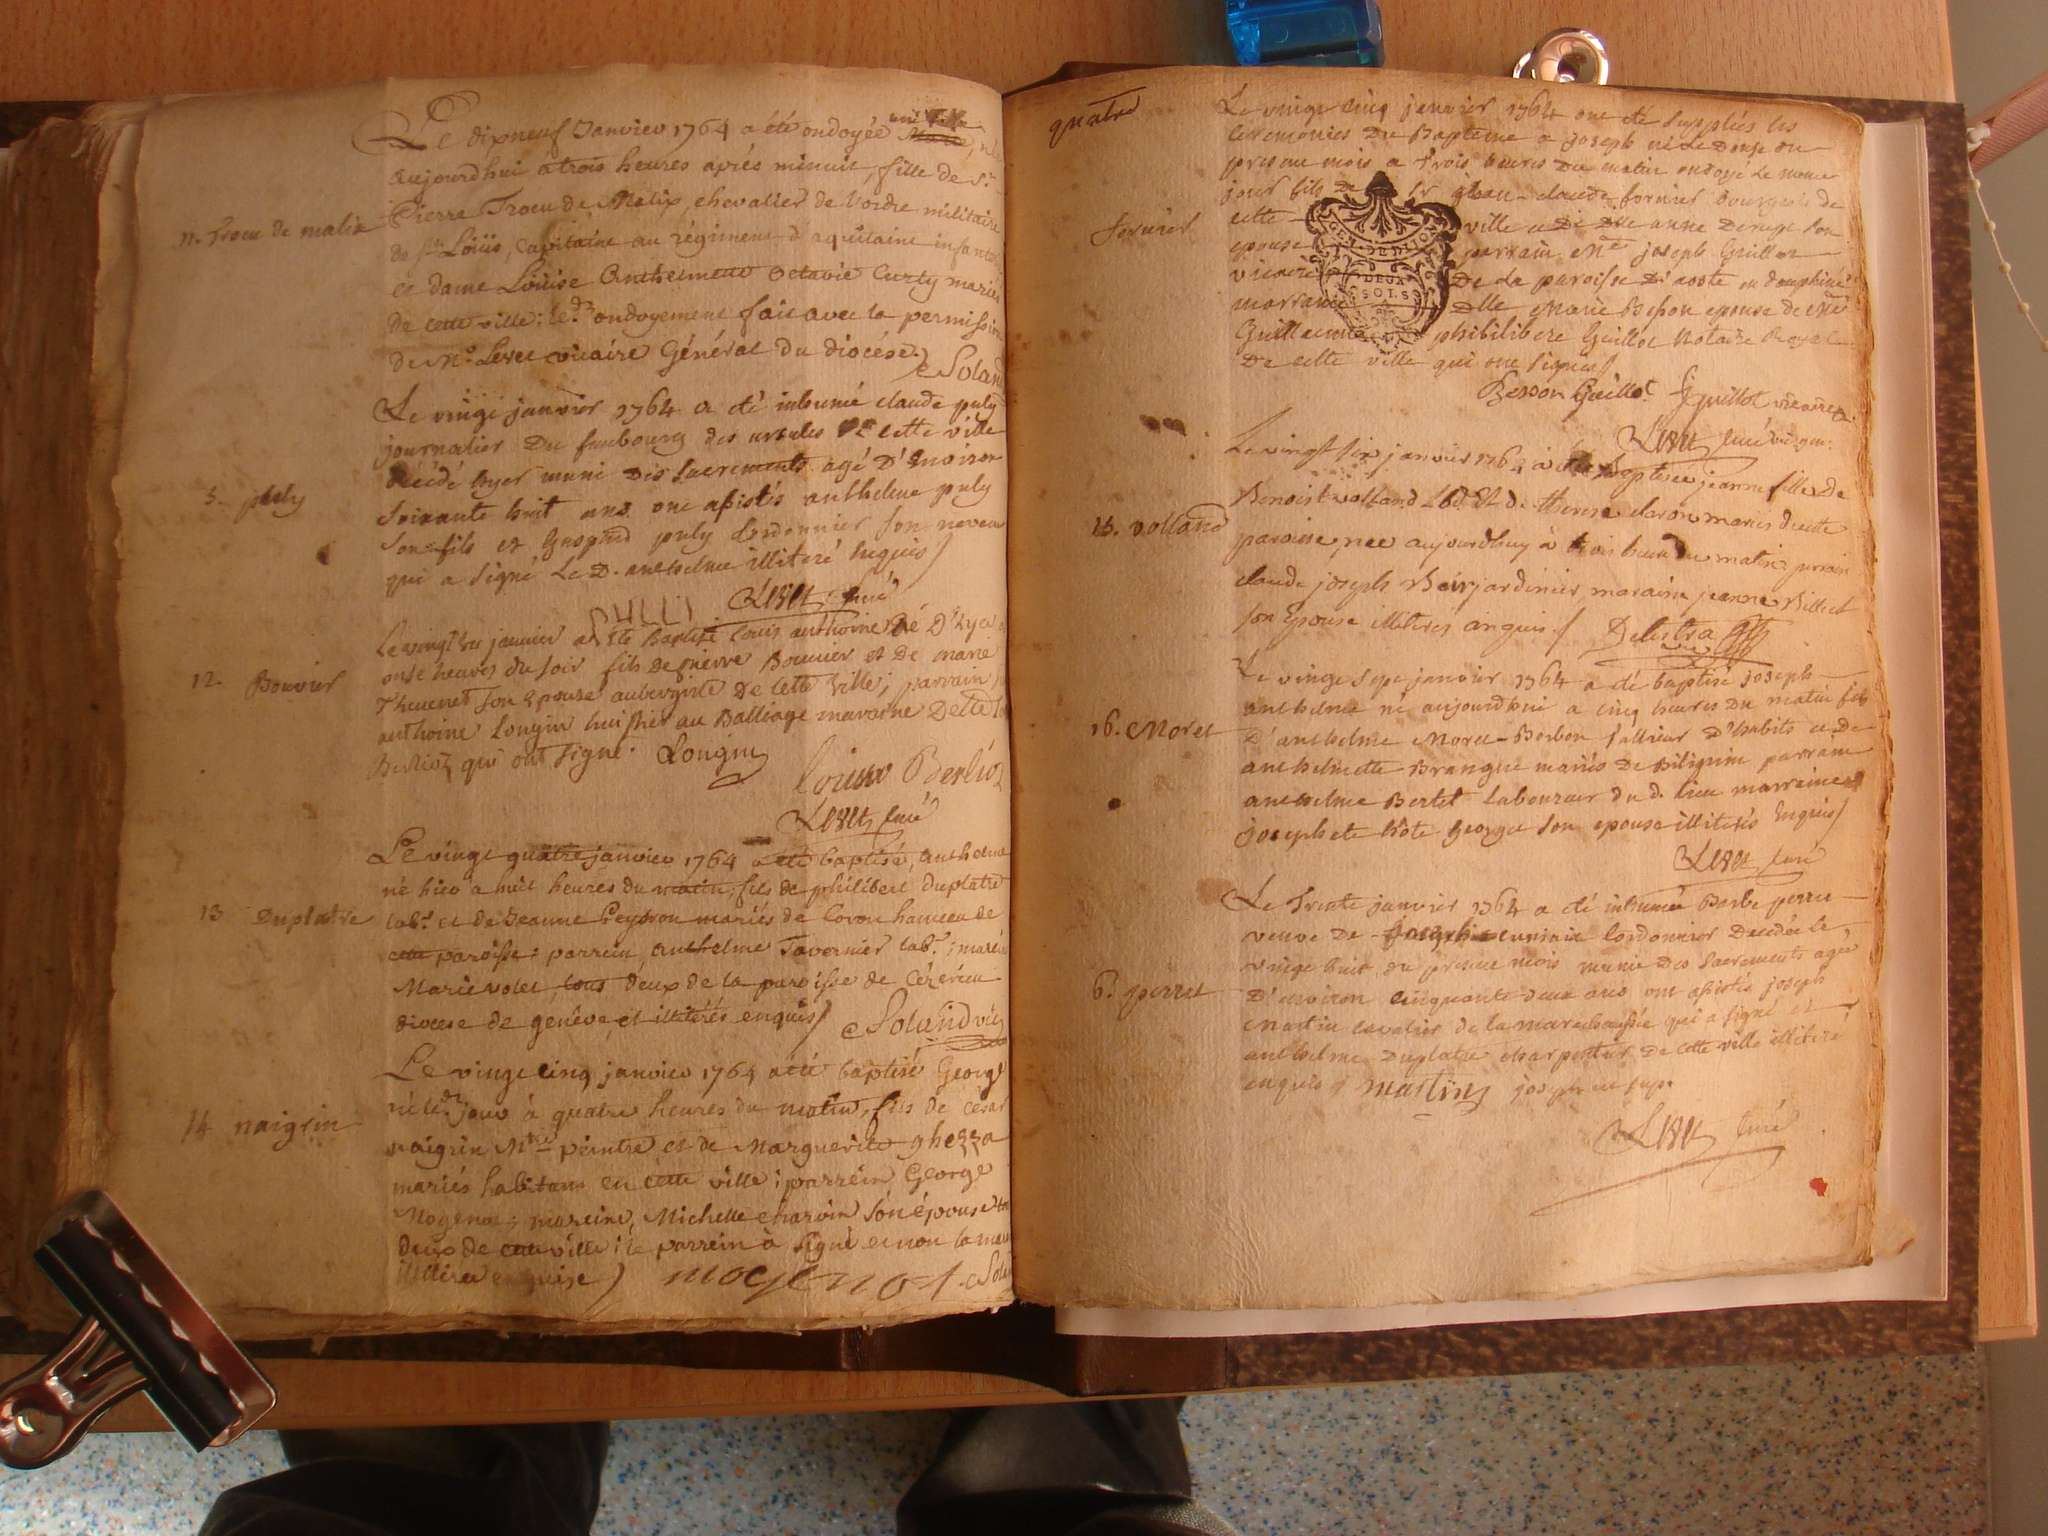 Le dixneuf Janvier 1764 a été ondoyée une fille
aujourdhui a trois heures aprés minuit, fille de Sr
n. Trocu de malix
Pierre Trocu de Malix, chevalier de l'ordre militaire
de St Loüis, Capitaine au régiment d'aquitaine infanterie
et dame Loüise Anthelmette Octavie Curty mariés
de cette ville; le dt ondoyement fait avec la permission
de Mr vicaire Général du diocése./
Le vingt janvier 1764 a été inhumé claude puly
journalier Du faubourg des ursules De cette ville
décédé hyer muni Des Sacrements agé D'environ
5. puly
Soixante huit ans ont assistés anthelme puly
Son fils et Gaspard puly Cordonnier Son neveu
qui a Signé Le D. anthelme illiteré Enquis/
PULLI curé
Le vingt janvier a été Baptisé Louis anthoine Né D'hyer a
12. Bouvier
onse heures du soir fils De pierre Bouvier et De marie
Thevenet son Epouse aubergiste De cette Ville; parrain
anthoine Longin huissier au Balliage maraine
Berlioz qui ont Signé. Longin
Louise Berlioz
curé
Le vingt quatre janvier 1764 a été baptisé, anthelme
né hier a huit heures du matin, fils de philibert Duplatre
13 Duplatre
labr. et de Jeanne Peysson mariés de Coron hameau de
cette paroisse: parrein, anthelme Tavernier labr.;
Marie volet, tous deux de la paroisse de Cézérieu
diocese de genêve et illiterés enquis/ Soland vic
Le vingt cinq janvier 1764 a été baptisé George
né le dt jour à quatre heures du matin, fils de César
14 naigrin
naigrin Mtre peintre et de Marguerite ghezza
mariés habitans en cette ville: parrein George
Mogenot; mareine, Michelle charvin Son épouse tous
deux de cette ville: le parrein a signé et non la
illiteree enquise / mogenot
quatre
Le vingt cinq janvier 1764 ont été Suppléés les
Ceremonies Du Baptême a joseph né Le Douse du
present mois a trois heures Du matin ondoyé Le meme
jour fils De Sr jean-claude fornier Bourgeois de
fornier
cette ville et De Dlle anne son
epouse parrain Mre joseph Guillot
GEN. DE DIJON
DEUX
SOLS
vicaire De La paroisse D'aoste en dauphiné
marraine Dlle Marie Besson epouse de Me
Guillaume philibert Guillot Notaire Royal
De cette ville qui ont Signés/
Besson Guillot J guillot vicaire
curé
Le vingt six janvier 1764 a été Baptisée jeanne fille De
Benoist volland et De therese claron mariés de cette
15. volland
paroisse, nee aujourdhuy à trois heures du matin; parrain
claude joseph jardinier, maraine jeanne Billiet
son Epouse illiteres enquis./ Delestra
Le vingt sept janvier 1764 a été baptisé joseph
anthelme né aujourdhui a cinq heures Du matin fils
16. Moret
D'anthelme Moret-Borbon Tallieur D'habits et De
anthelmette Brangue mariés De Billignin parrain
anthelme Bertet Laboureur du d. Lieu marraine
josephete George Son epouse illiterés Enquis/
curé
Le Trente janvier 1764 a été inhumée Barbe perret
veuve De cordonnier Decedée le
vingt huit du present mois munie Des Sacrements agée
6. perret
D'environ cinquante deux ans ont assistés joseph
Martin cavalier de la marechaussée qui a signé et
anthelme Duplatre charpentier de cette ville illiteré
enquis / martin
curé